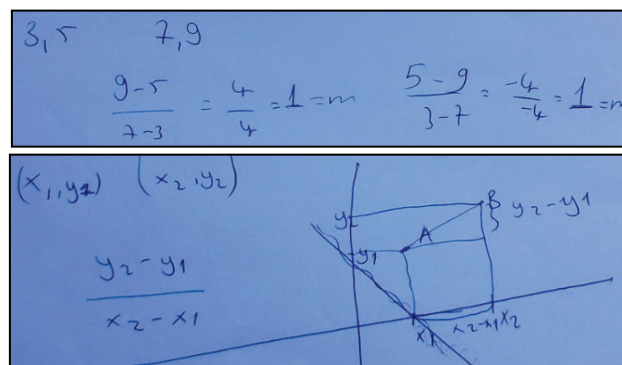 3,5 7,9
9-5/7-3 = 4/4 = 1 = m 5-9/3-7 = -4/-4 = 1 = m
(x1,y1) (x2,y2)
y2
B y2-y1
A
y1
y2-y1/x2-x1
x1 x2-x1 x2